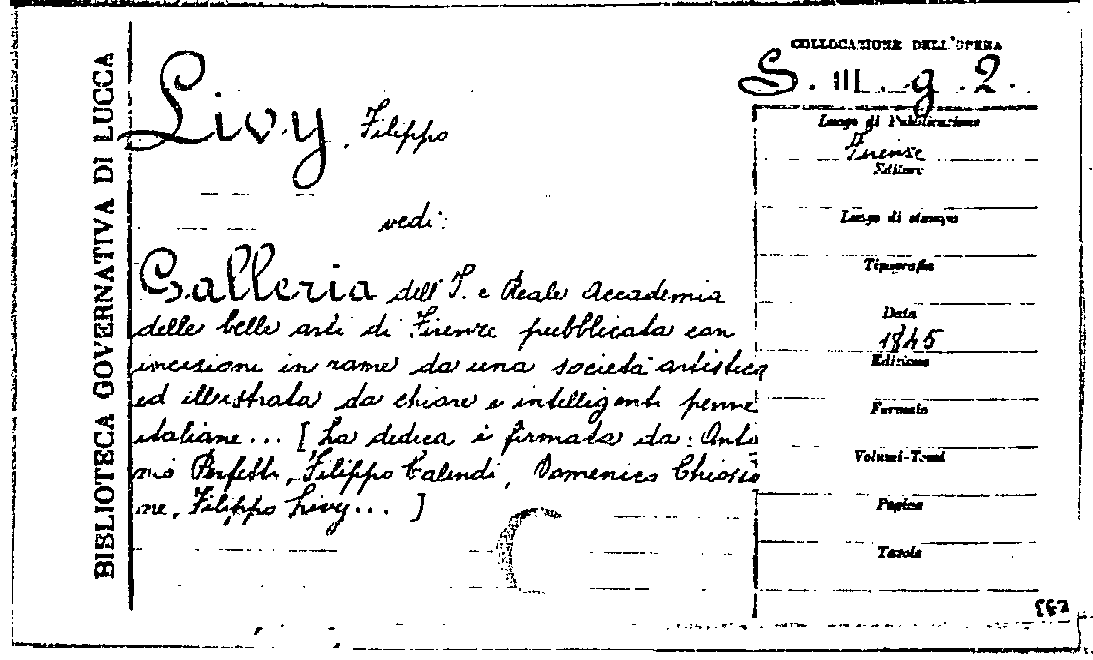 BIBLIOTECA GOVERNATIVA DI LUCCA
Livy, Filippo
vedi:
Galleria dell'I. e Reale Accademia
delle belle arti di Firenze pubblicata con
incisioni in rame da una società artistica
ed illustrata da chiare e intelligenti penne
italiane... [La dedica è firmata da: Anto
nio Perfetti, Filippo Calendi, Domenico Chiosso
ne, Filippo Livy...]
COLLOCAZIONE DELL'OPERA
S. III. g. 2.
Luogo di Pubblicazione
Firenze
Editore
Luogo di stampa
Tipografia
Data
1845
Edizione
Formato
Volumi-Tomi
Pagine
Tavole